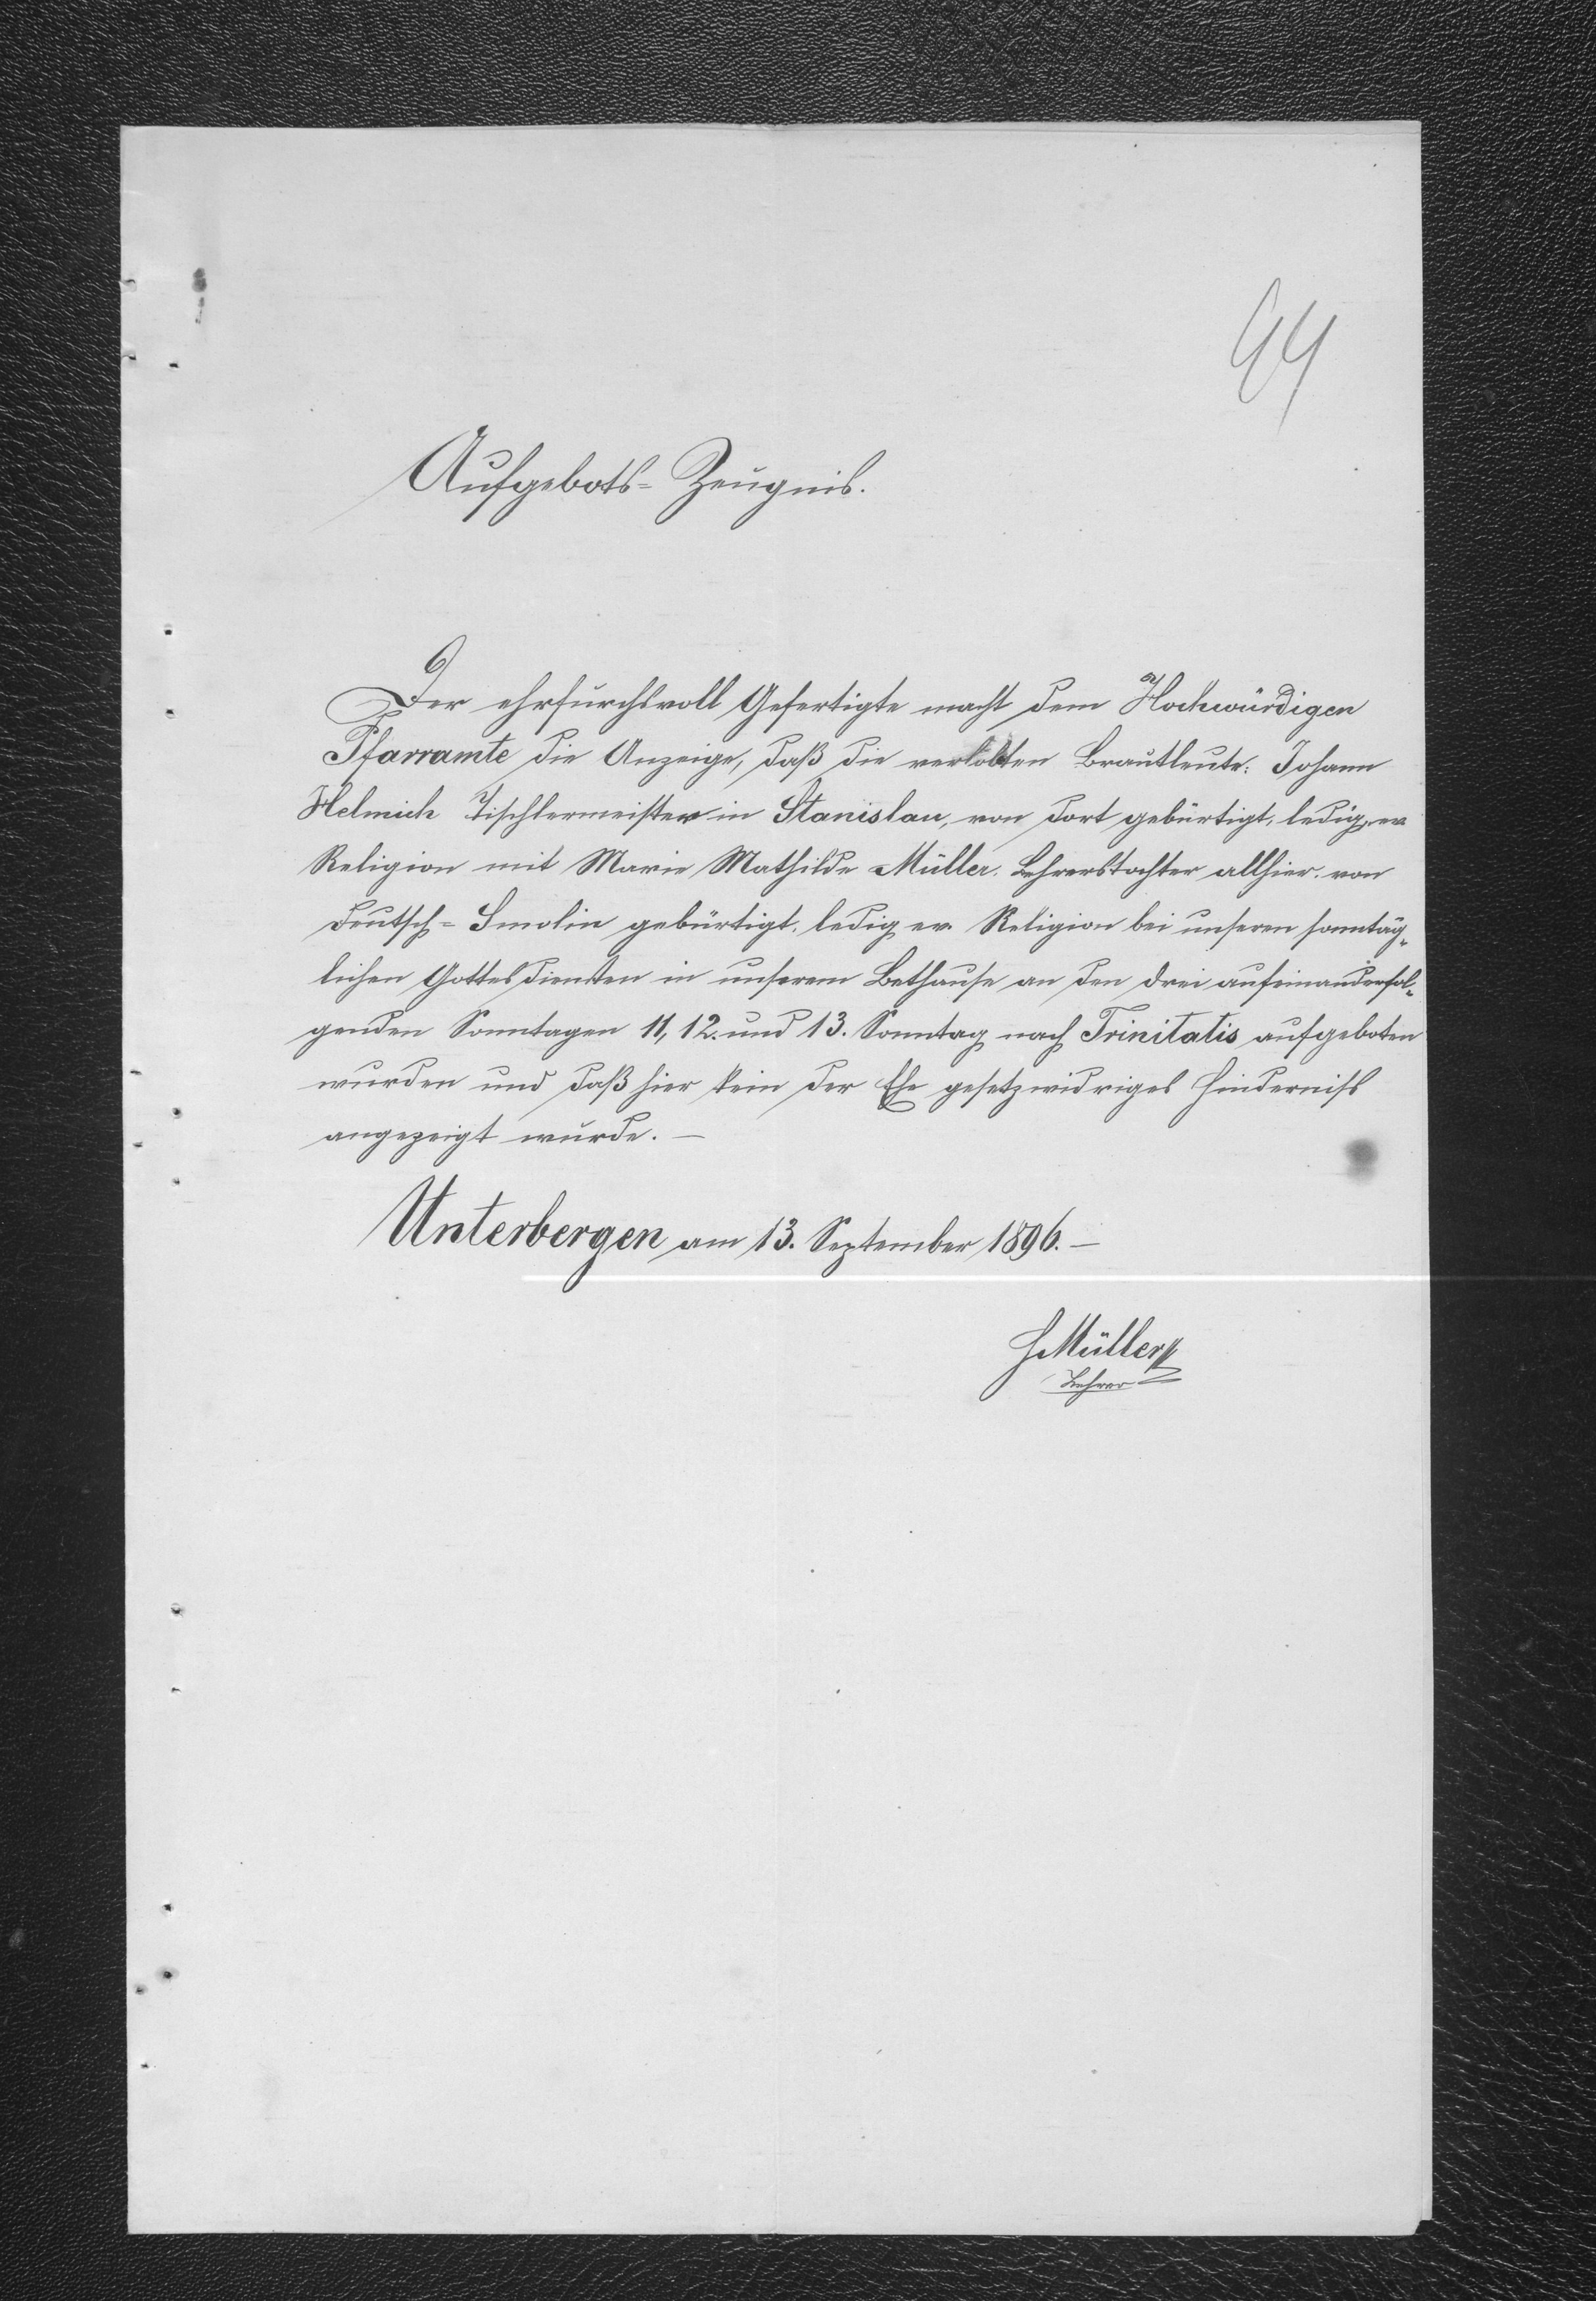 44
Aufgebots-Zeugnis.
Der ehrfurchsvoll Gefertigte macht dem Hochwürdigen
Pfarramte die Anzeige, daß die verlobten Brautleute: Johann
Helmich Tischlermeister in Stanislau, von dort gebürtigt, ledig, ev.
Religion mit Marie Mathilde Müller, Lehrerstochter allhier, von
Deutsch-Smolin gebürtigt, ledig ev. Religion bei unseren sonntäg-
lichen Gottesdiensten in unserem Bethause an den drei aufeinanderfol-
genden Sonntagen 11, 12. und 13. Sonntag nach Trinitatis aufgeboten
wurden und daß hier kein der Ehe gesetzwidriges Hinderniss
angezeigt wurde. —
Unterbergen am 13. September 1896. —
HMüller
Lehrer